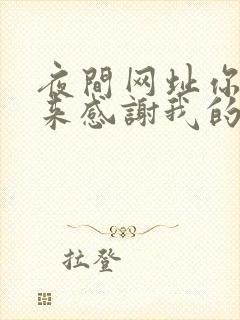 夜間网址你
来感謝我的
拉登